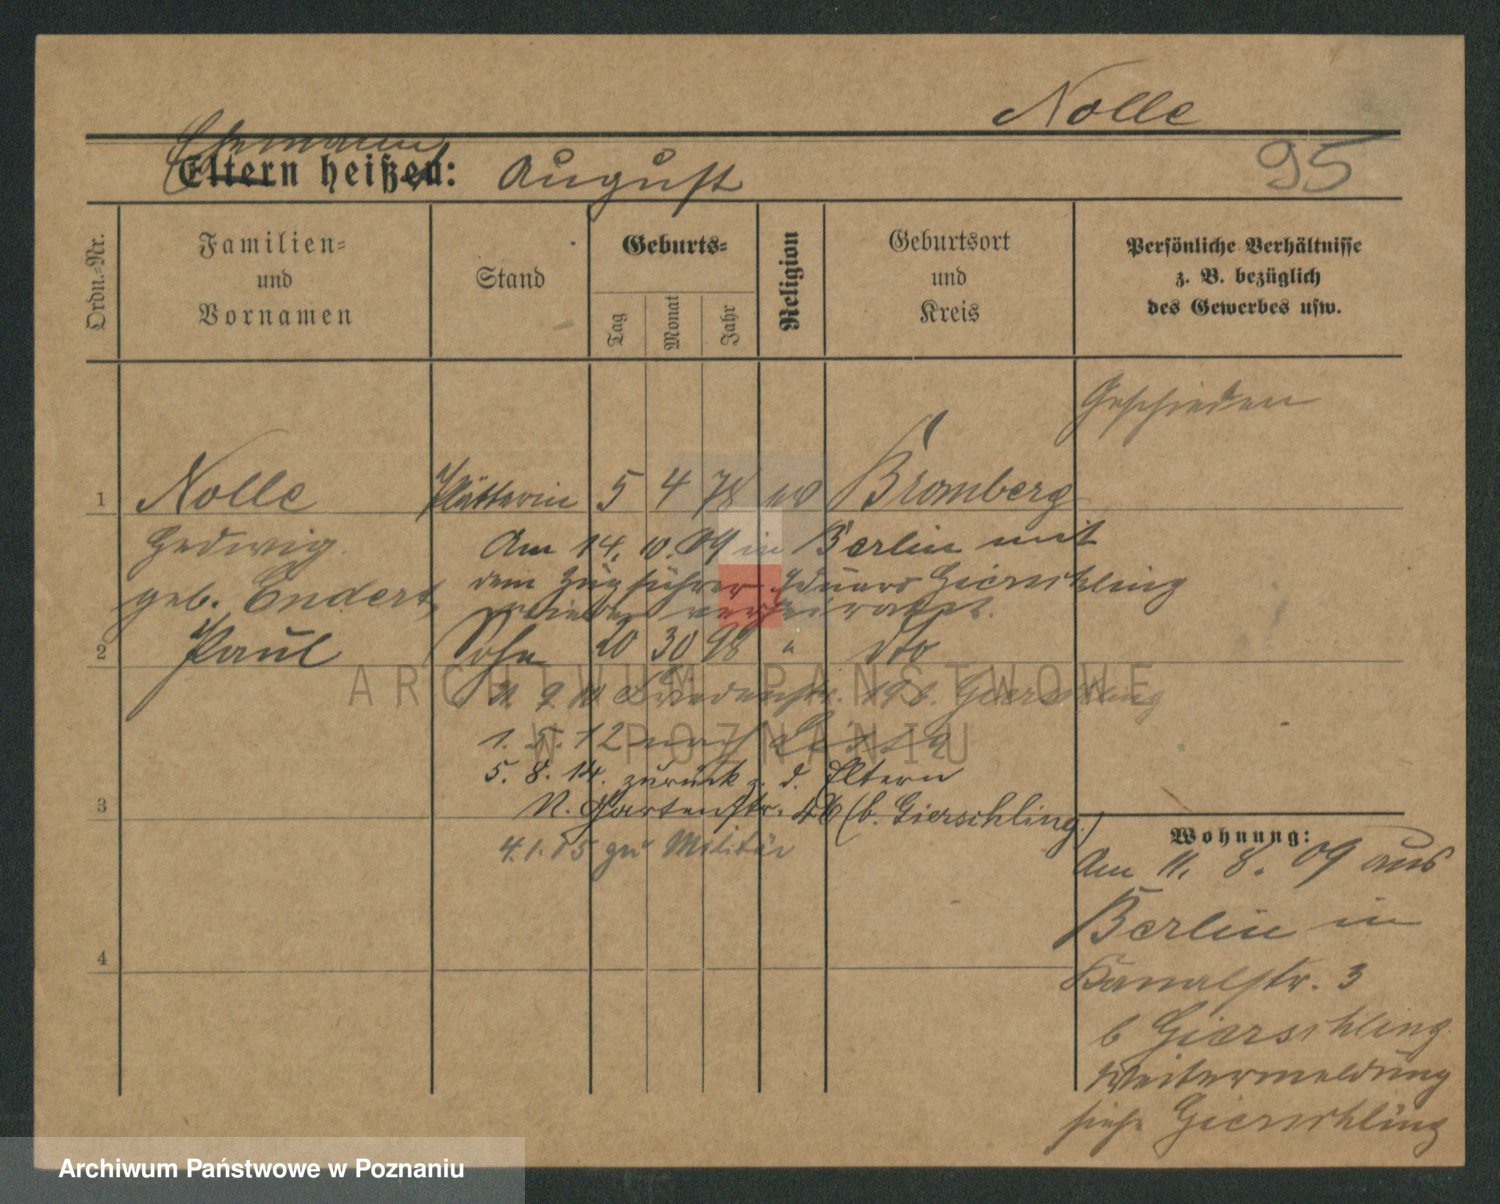 Nolle
Ehemann
Eltern heißen: August
95
Ordn.-Nr.
Familien-
und
Vornamen
Stand
Geburts-
Tag
Monat
Jahr
Religion
Geburtsort
und
Kreis
Persönliche Verhältnisse
z. B. bezüglich
des Gewerbes usw.
Geschieden
1 Nolle Plätterin 5 4 78 ev Bromberg
Hedwig
geb. Endert
Am 14. 10. 09 in Berlin mit
dem Zugführer Eduard Gierschling
wieder verheiratet.
2 Paul Sohn 20 30 98 " dto
9. Friedenstr. 19 b. Gierschling
1. 5. 12 nach
5. 8. 14. zurück z. d. Eltern
3 N. Gartenstr. (b. Gierschling)
4. 1. 15 zu Militär
4
Wohnung:
Am 11. 8. 09 aus
Berlin in
Kanalstr. 3
b Gierschling
Weitermeldung
siehe Gierschling
ARCHIWUM PAŃSTWOWE
W POZNANIU
Archiwum Państwowe w Poznaniu